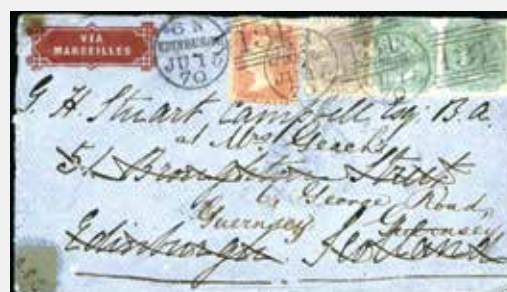 VIA
MARSEILLES
EDINBURGH
JU 15
70
131
G. H. Stuart Campbell Esq. B.A.
at Mrs Geach's
51 Broughton Street
6, George Road,
Guernsey Guernsey
Edinburgh Scotland